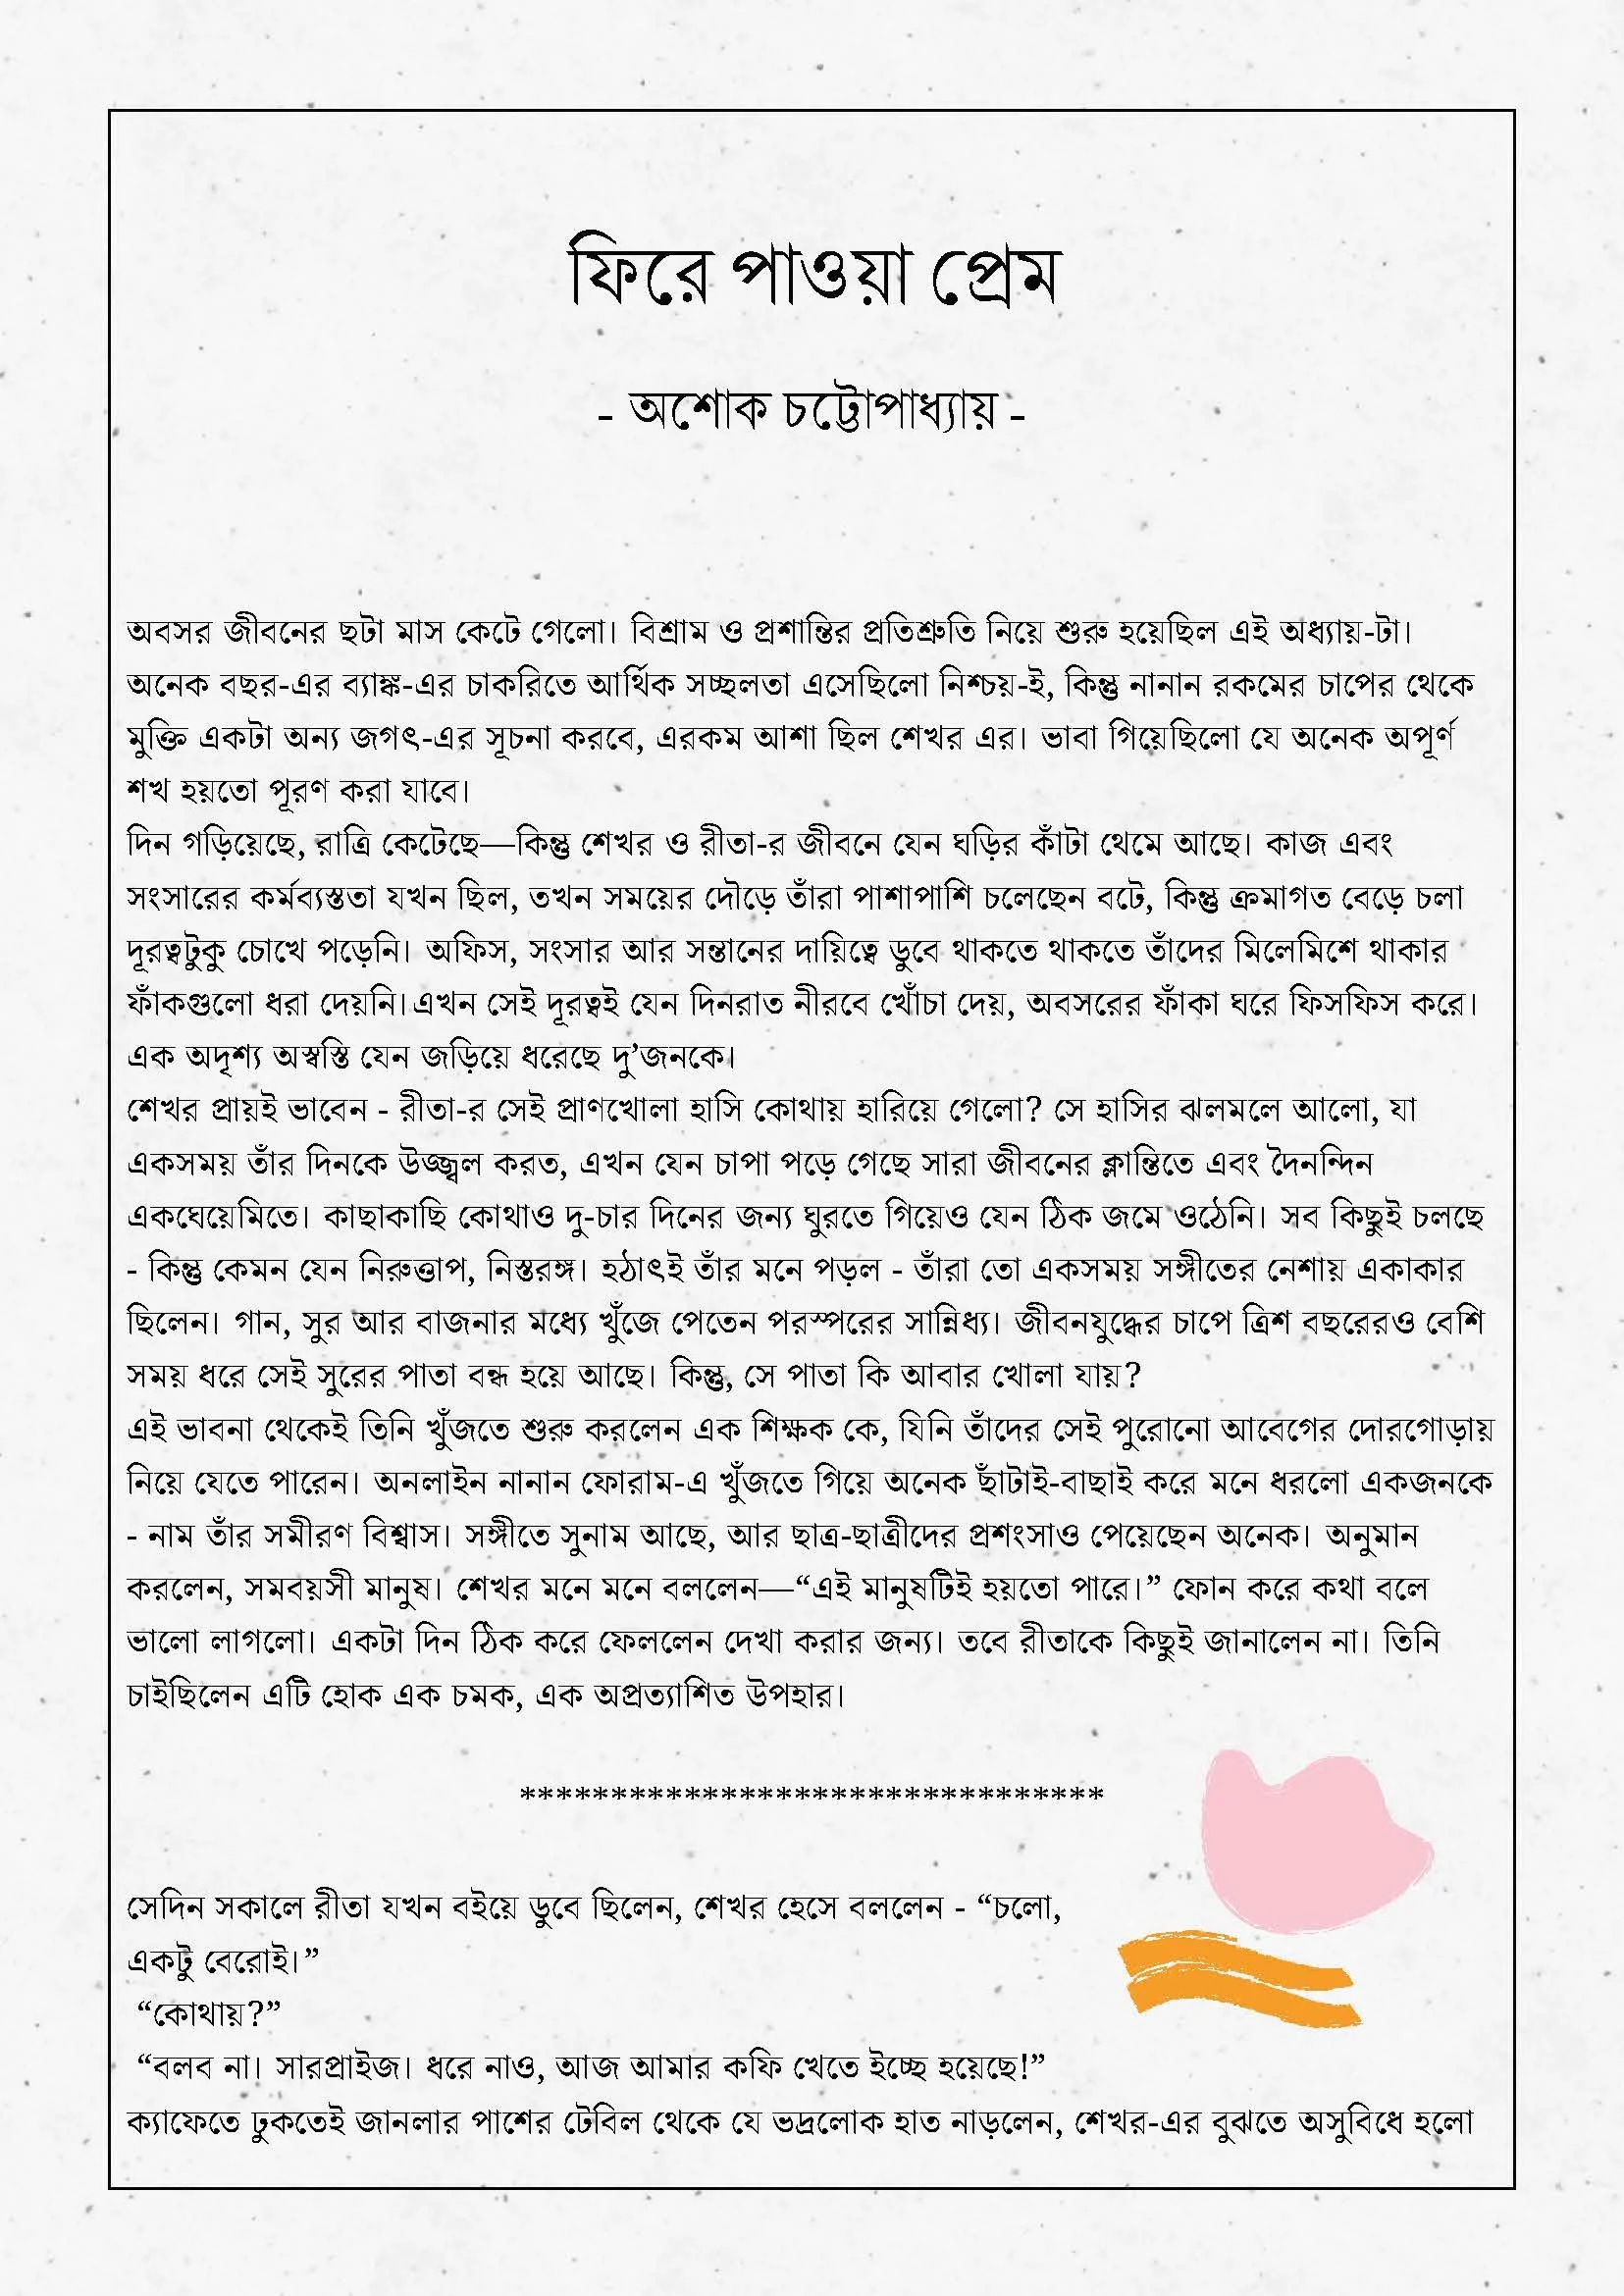 ফিরে পাওয়া প্রেম
- অশোক চট্টোপাধ্যায় -
অবসর জীবনের ছটা মাস কেটে গেলো। বিশ্রাম ও প্রশান্তির প্রতিশ্রুতি নিয়ে শুরু হয়েছিল এই অধ্যায়-টা।
অনেক বছর-এর ব্যাঙ্ক-এর চাকরিতে আর্থিক সচ্ছলতা এসেছিলো নিশ্চয়-ই, কিন্তু নানান রকমের চাপের থেকে
মুক্তি একটা অন্য জগৎ-এর সূচনা করবে, এরকম আশা ছিল শেখর এর। ভাবা গিয়েছিলো যে অনেক অপূর্ণ
শখ হয়তো পূরণ করা যাবে।
দিন গড়িয়েছে, রাত্রি কেটেছে—কিন্তু শেখর ও রীতা-র জীবনে যেন ঘড়ির কাঁটা থেমে আছে। কাজ এবং
সংসারের কর্মব্যস্ততা যখন ছিল, তখন সময়ের দৌড়ে তাঁরা পাশাপাশি চলেছেন বটে, কিন্তু ক্রমাগত বেড়ে চলা
দূরত্বটুকু চোখে পড়েনি। অফিস, সংসার আর সন্তানের দায়িত্বে ডুবে থাকতে থাকতে তাঁদের মিলেমিশে থাকার
ফাঁকগুলো ধরা দেয়নি। এখন সেই দূরত্বই যেন দিনরাত নীরবে খোঁচা দেয়, অবসরের ফাঁকা ঘরে ফিসফিস করে।
এক অদৃশ্য অস্বস্তি যেন জড়িয়ে ধরেছে দু’জনকে।
শেখর প্রায়ই ভাবেন - রীতা-র সেই প্রাণখোলা হাসি কোথায় হারিয়ে গেলো? সে হাসির ঝলমলে আলো, যা
একসময় তাঁর দিনকে উজ্জ্বল করত, এখন যেন চাপা পড়ে গেছে সারা জীবনের ক্লান্তিতে এবং দৈনন্দিন
একঘেয়েমিতে। কাছাকাছি কোথাও দু-চার দিনের জন্য ঘুরতে গিয়েও যেন ঠিক জমে ওঠেনি। সব কিছুই চলছে
- কিন্তু কেমন যেন নিরুত্তাপ, নিস্তরঙ্গ। হঠাৎই তাঁর মনে পড়ল - তাঁরা তো একসময় সঙ্গীতের নেশায় একাকার
ছিলেন। গান, সুর আর বাজনার মধ্যে খুঁজে পেতেন পরস্পরের সান্নিধ্য। জীবনযুদ্ধের চাপে ত্রিশ বছরেরও বেশি
সময় ধরে সেই সুরের পাতা বন্ধ হয়ে আছে। কিন্তু, সে পাতা কি আবার খোলা যায়?
এই ভাবনা থেকেই তিনি খুঁজতে শুরু করলেন এক শিক্ষক কে, যিনি তাঁদের সেই পুরোনো আবেগের দোরগোড়ায়
নিয়ে যেতে পারেন। অনলাইন নানান ফোরাম-এ খুঁজতে গিয়ে অনেক ছাঁটাই-বাছাই করে মনে ধরলো একজনকে
- নাম তাঁর সমীরণ বিশ্বাস। সঙ্গীতে সুনাম আছে, আর ছাত্র-ছাত্রীদের প্রশংসাও পেয়েছেন অনেক। অনুমান
করলেন, সমবয়সী মানুষ। শেখর মনে মনে বললেন—“এই মানুষটিই হয়তো পারে।” ফোন করে কথা বলে
ভালো লাগলো। একটা দিন ঠিক করে ফেললেন দেখা করার জন্য। তবে রীতাকে কিছুই জানালেন না। তিনি
চাইছিলেন এটি হোক এক চমক, এক অপ্রত্যাশিত উপহার।
********************************
সেদিন সকালে রীতা যখন বইয়ে ডুবে ছিলেন, শেখর হেসে বললেন - “চলো,
একটু বেরোই।”
“কোথায়?”
“বলব না। সারপ্রাইজ। ধরে নাও, আজ আমার কফি খেতে ইচ্ছে হয়েছে!”
ক্যাফেতে ঢুকতেই জানলার পাশের টেবিল থেকে যে ভদ্রলোক হাত নাড়লেন, শেখর-এর বুঝতে অসুবিধে হলো